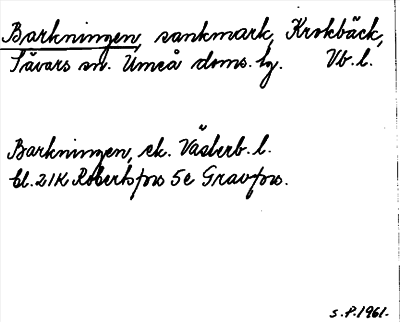 Barkningen, sankmark, Krokbäck,
Sävars sn. Umeå doms. hg. Vb. l.
Barkningen, ek. Västerb. l.
Bl. 21K Robertsfors 5e Gravfors.
S. P. 1961.